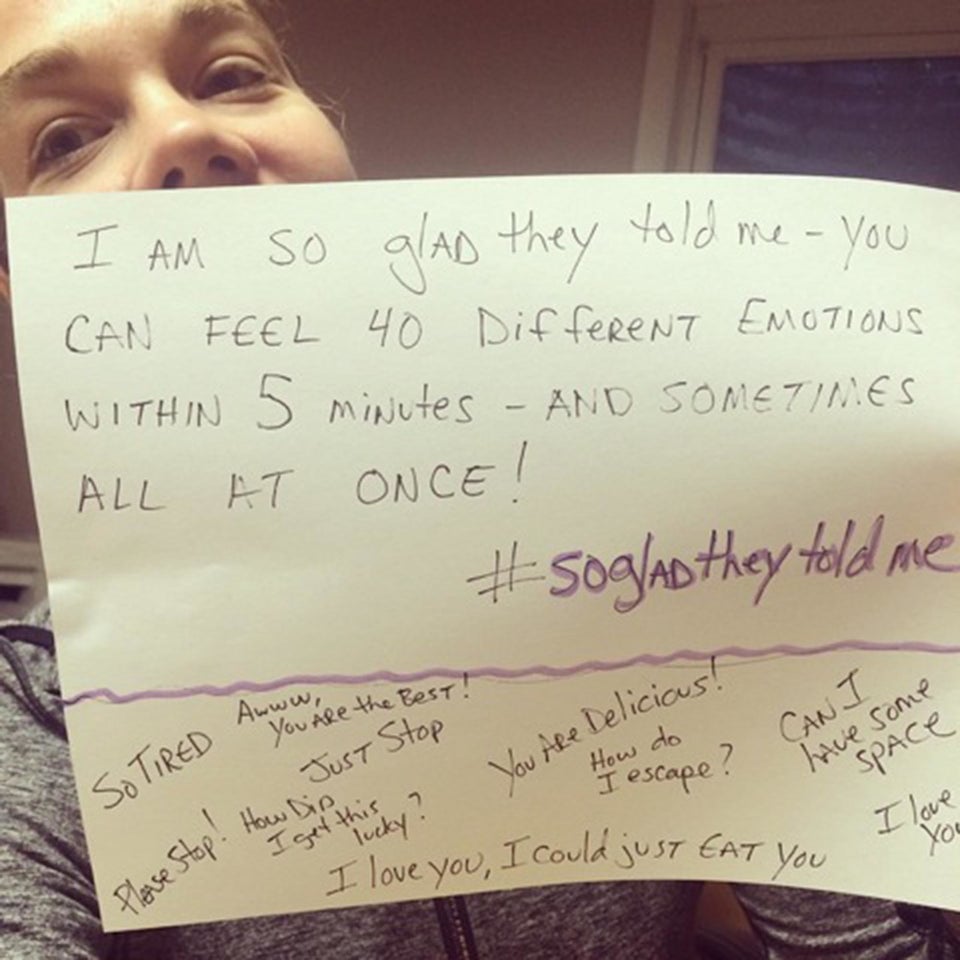 I AM SO glAD they told me - YOU
CAN FEEL 40 DiffeRENT EMOTIONS
WITHIN 5 miNutes - AND SOMETIMES
ALL AT ONCE!
#soglADtheytoldme
Awww,
You ARe the BesT!
So TIRED
JUST Stop
You ARe Delicious!
How do
I escape?
CAN I
have some
space
Please Stop!
How DiD
I get this
lucky?
I love you, I could just EAT you
I love
you